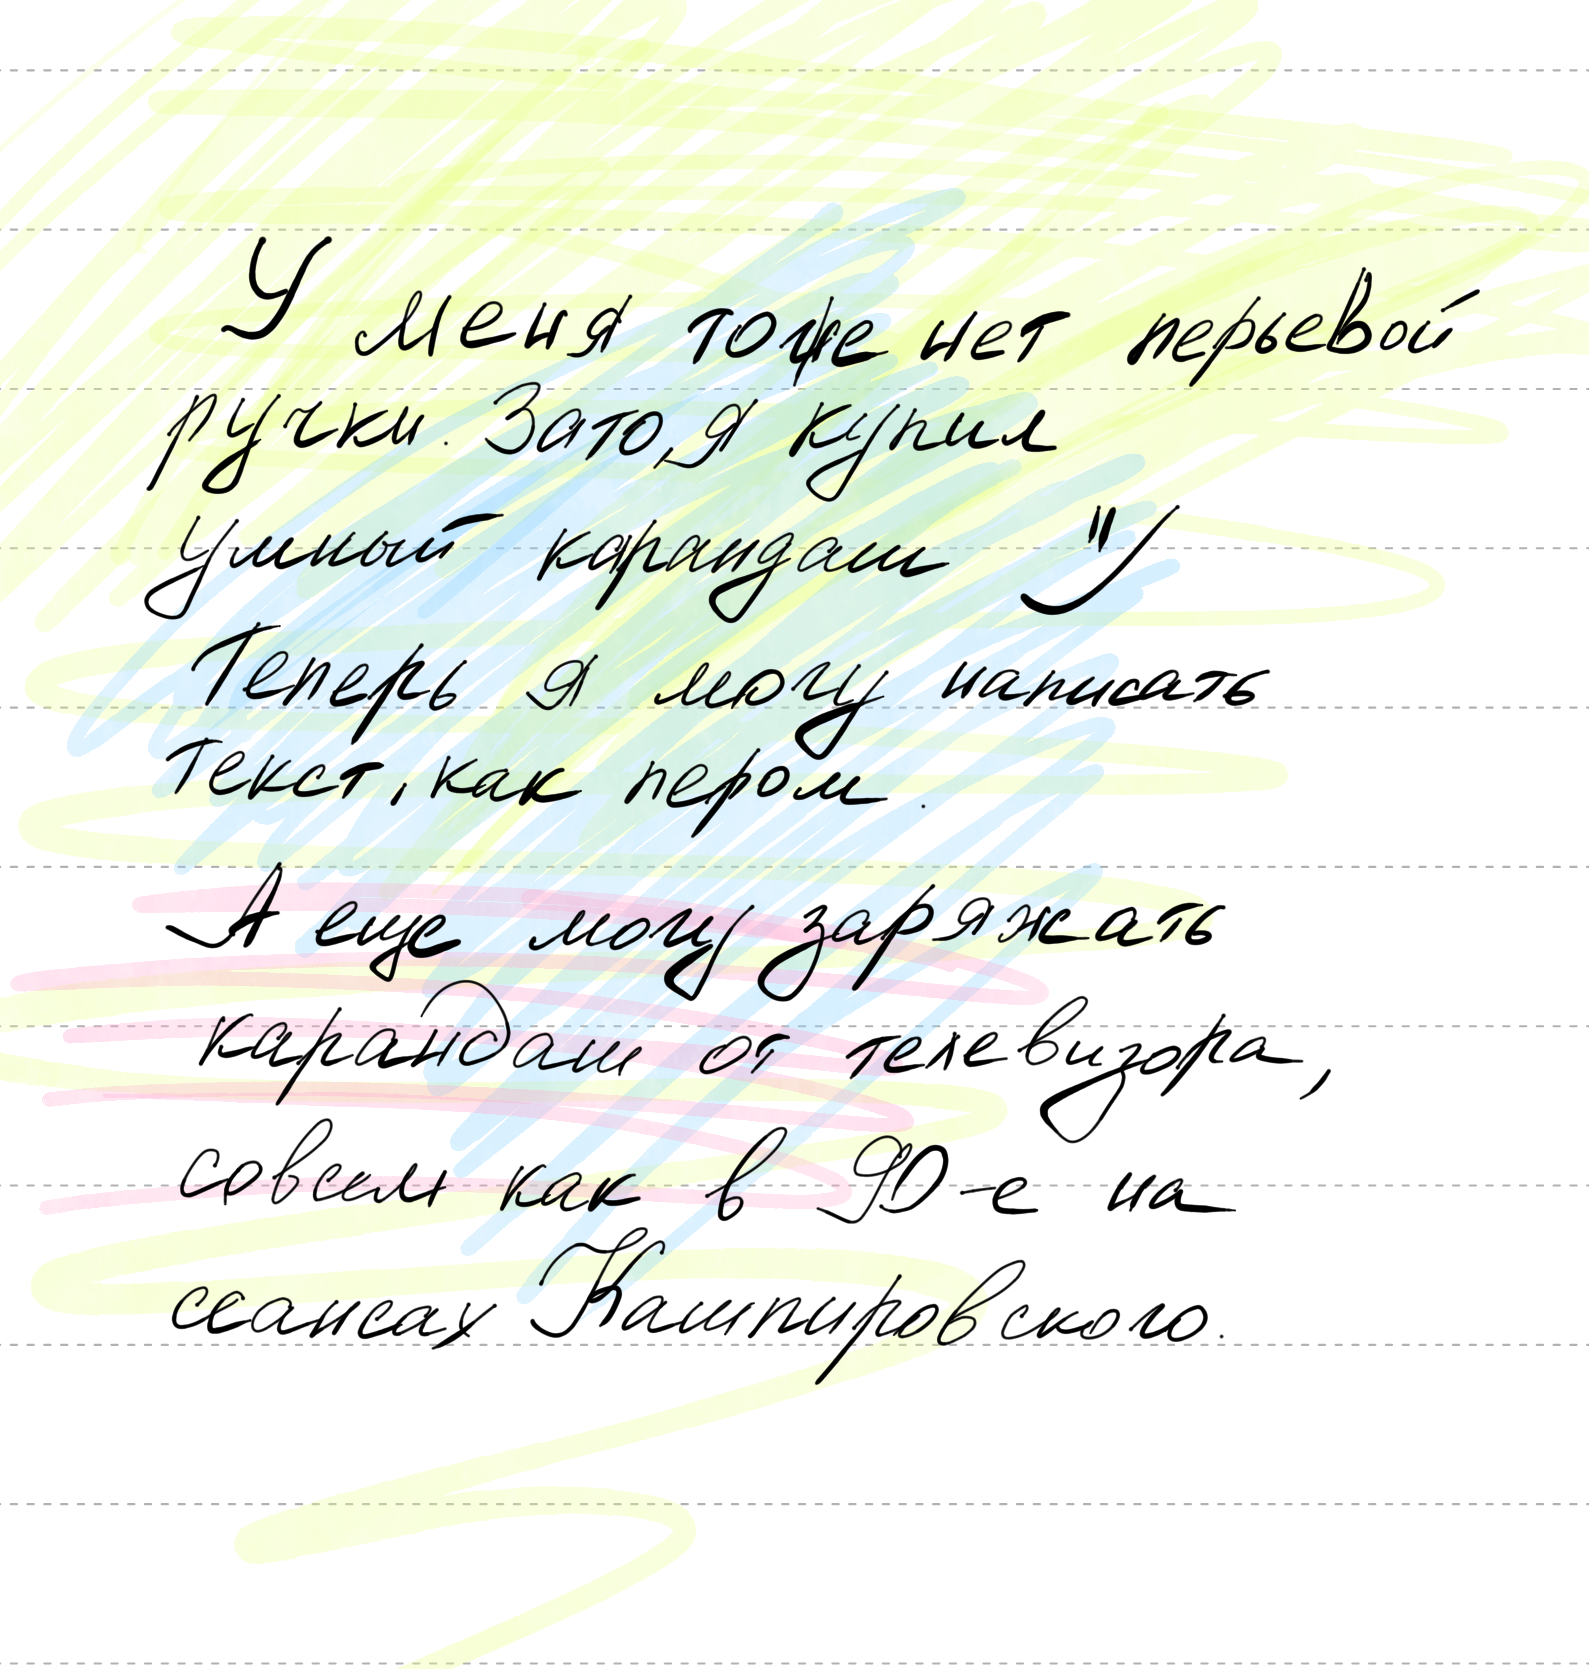 У меня тоже нет перьевой
ручки. Зато, я купил
умный карандаш ")
Теперь я могу написать
текст, как пером.
А еще могу заряжать
карандаш от телевизора,
совсем как в 90-е на
сеансах Кашпировского.